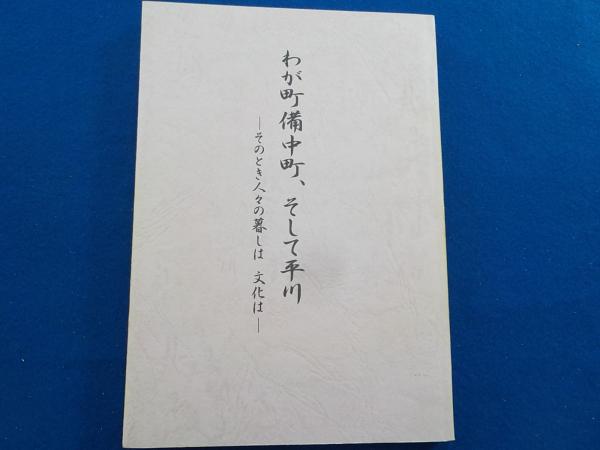 わが町備中町、そして平川
―そのとき人々の暮しは 文化は―